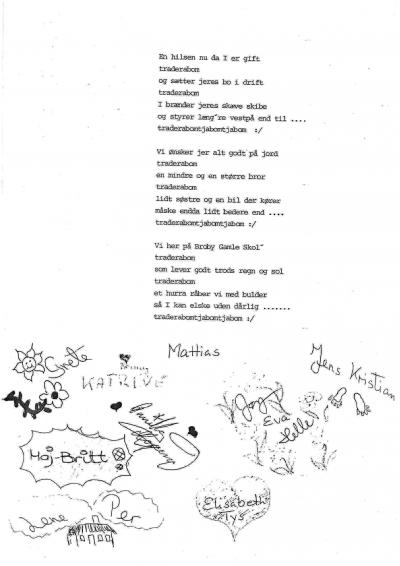 En hilsen nu da I er gift
traderabom
og sætter jeres bo i drift
traderabom
I brænder jeres skøve skibe
og styrer læng"re vestpå end til ....
traderabomtjabomtjabom :/
Vi ønsker jer alt godt på jord
traderabom
en mindre og en større bror
traderabom
lidt søstre og en bil der kører
måske endda lidt bedere end ....
traderabomtjabomtjabom :/
Vi her på Broby Gamle Skol"
traderabom
som lever godt trods regn og sol
traderabom
et hurra råber vi med bulder
så I kan elske uden dårlig .......
traderabomtjabomtjabom :/
Grete
KATRINE
Mattias
Jens Kristian
Eva
Helle
Maj-Britt
Lene
Per
Elisabeth
Tys